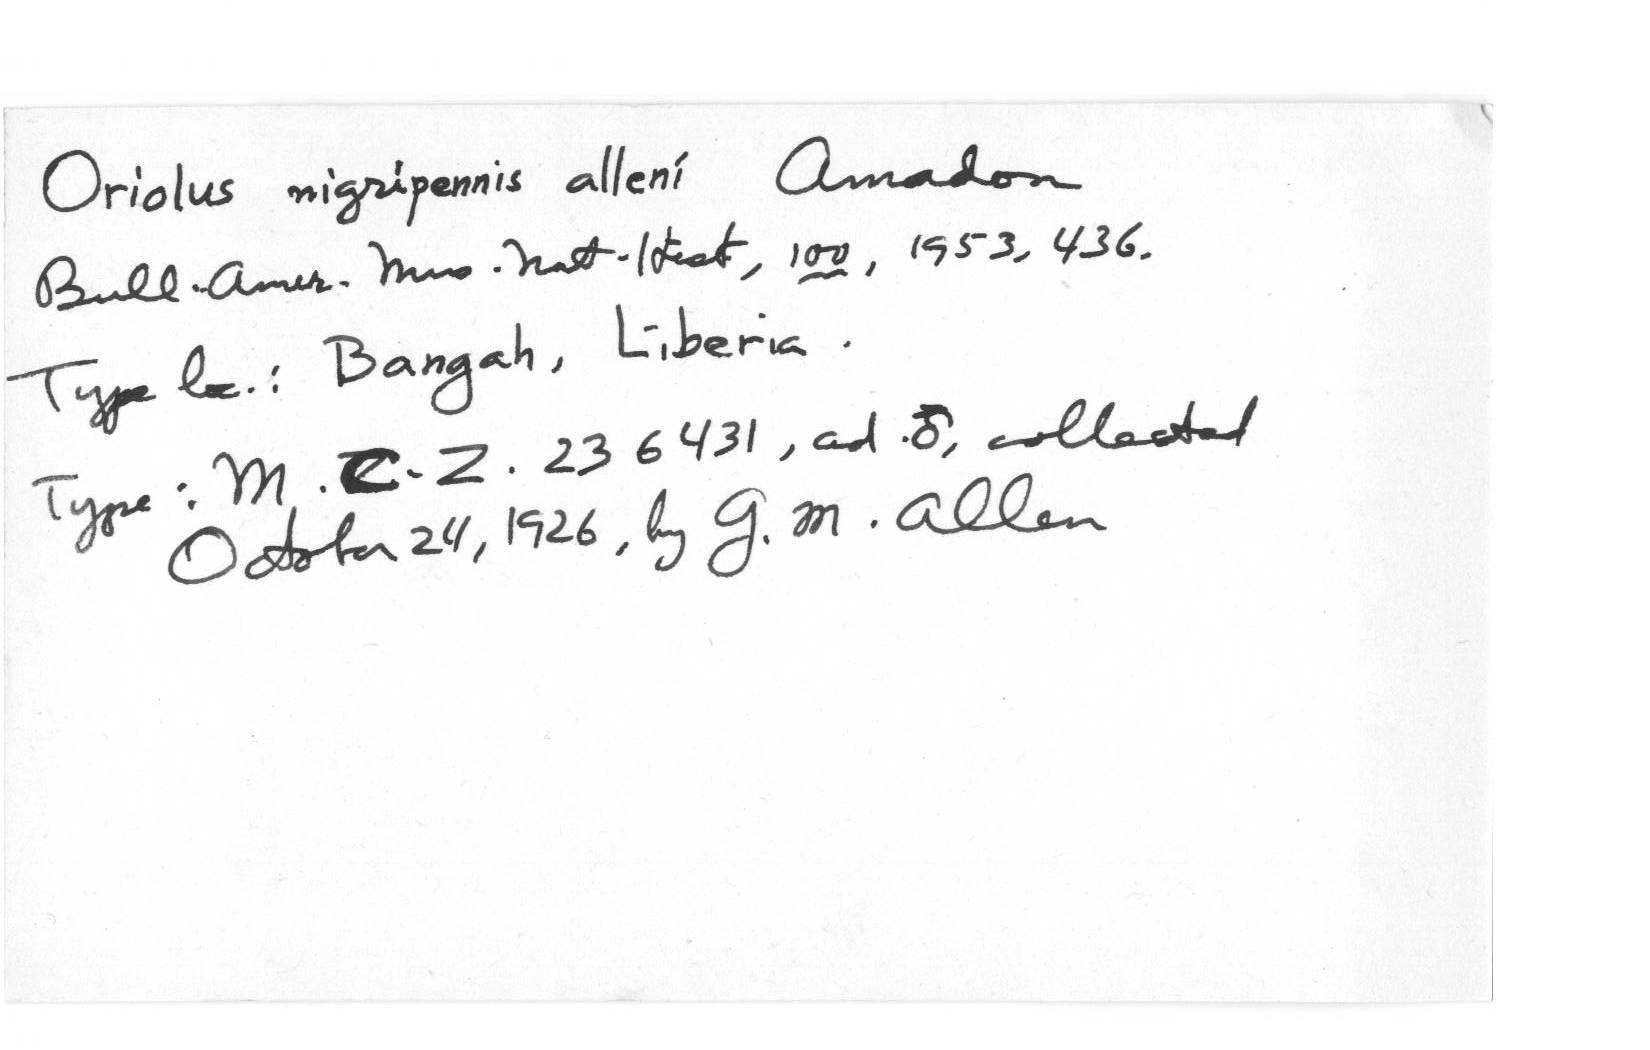 Oriolus nigripennis alleni Amadon
Bull. Amer. Mus. Nat. Hist, 100, 1953, 436.
Type loc.: Bangah, Liberia.
Type: M.C.Z. 236431, ad. ♂, collected
October 24, 1926, by G. M. Allen